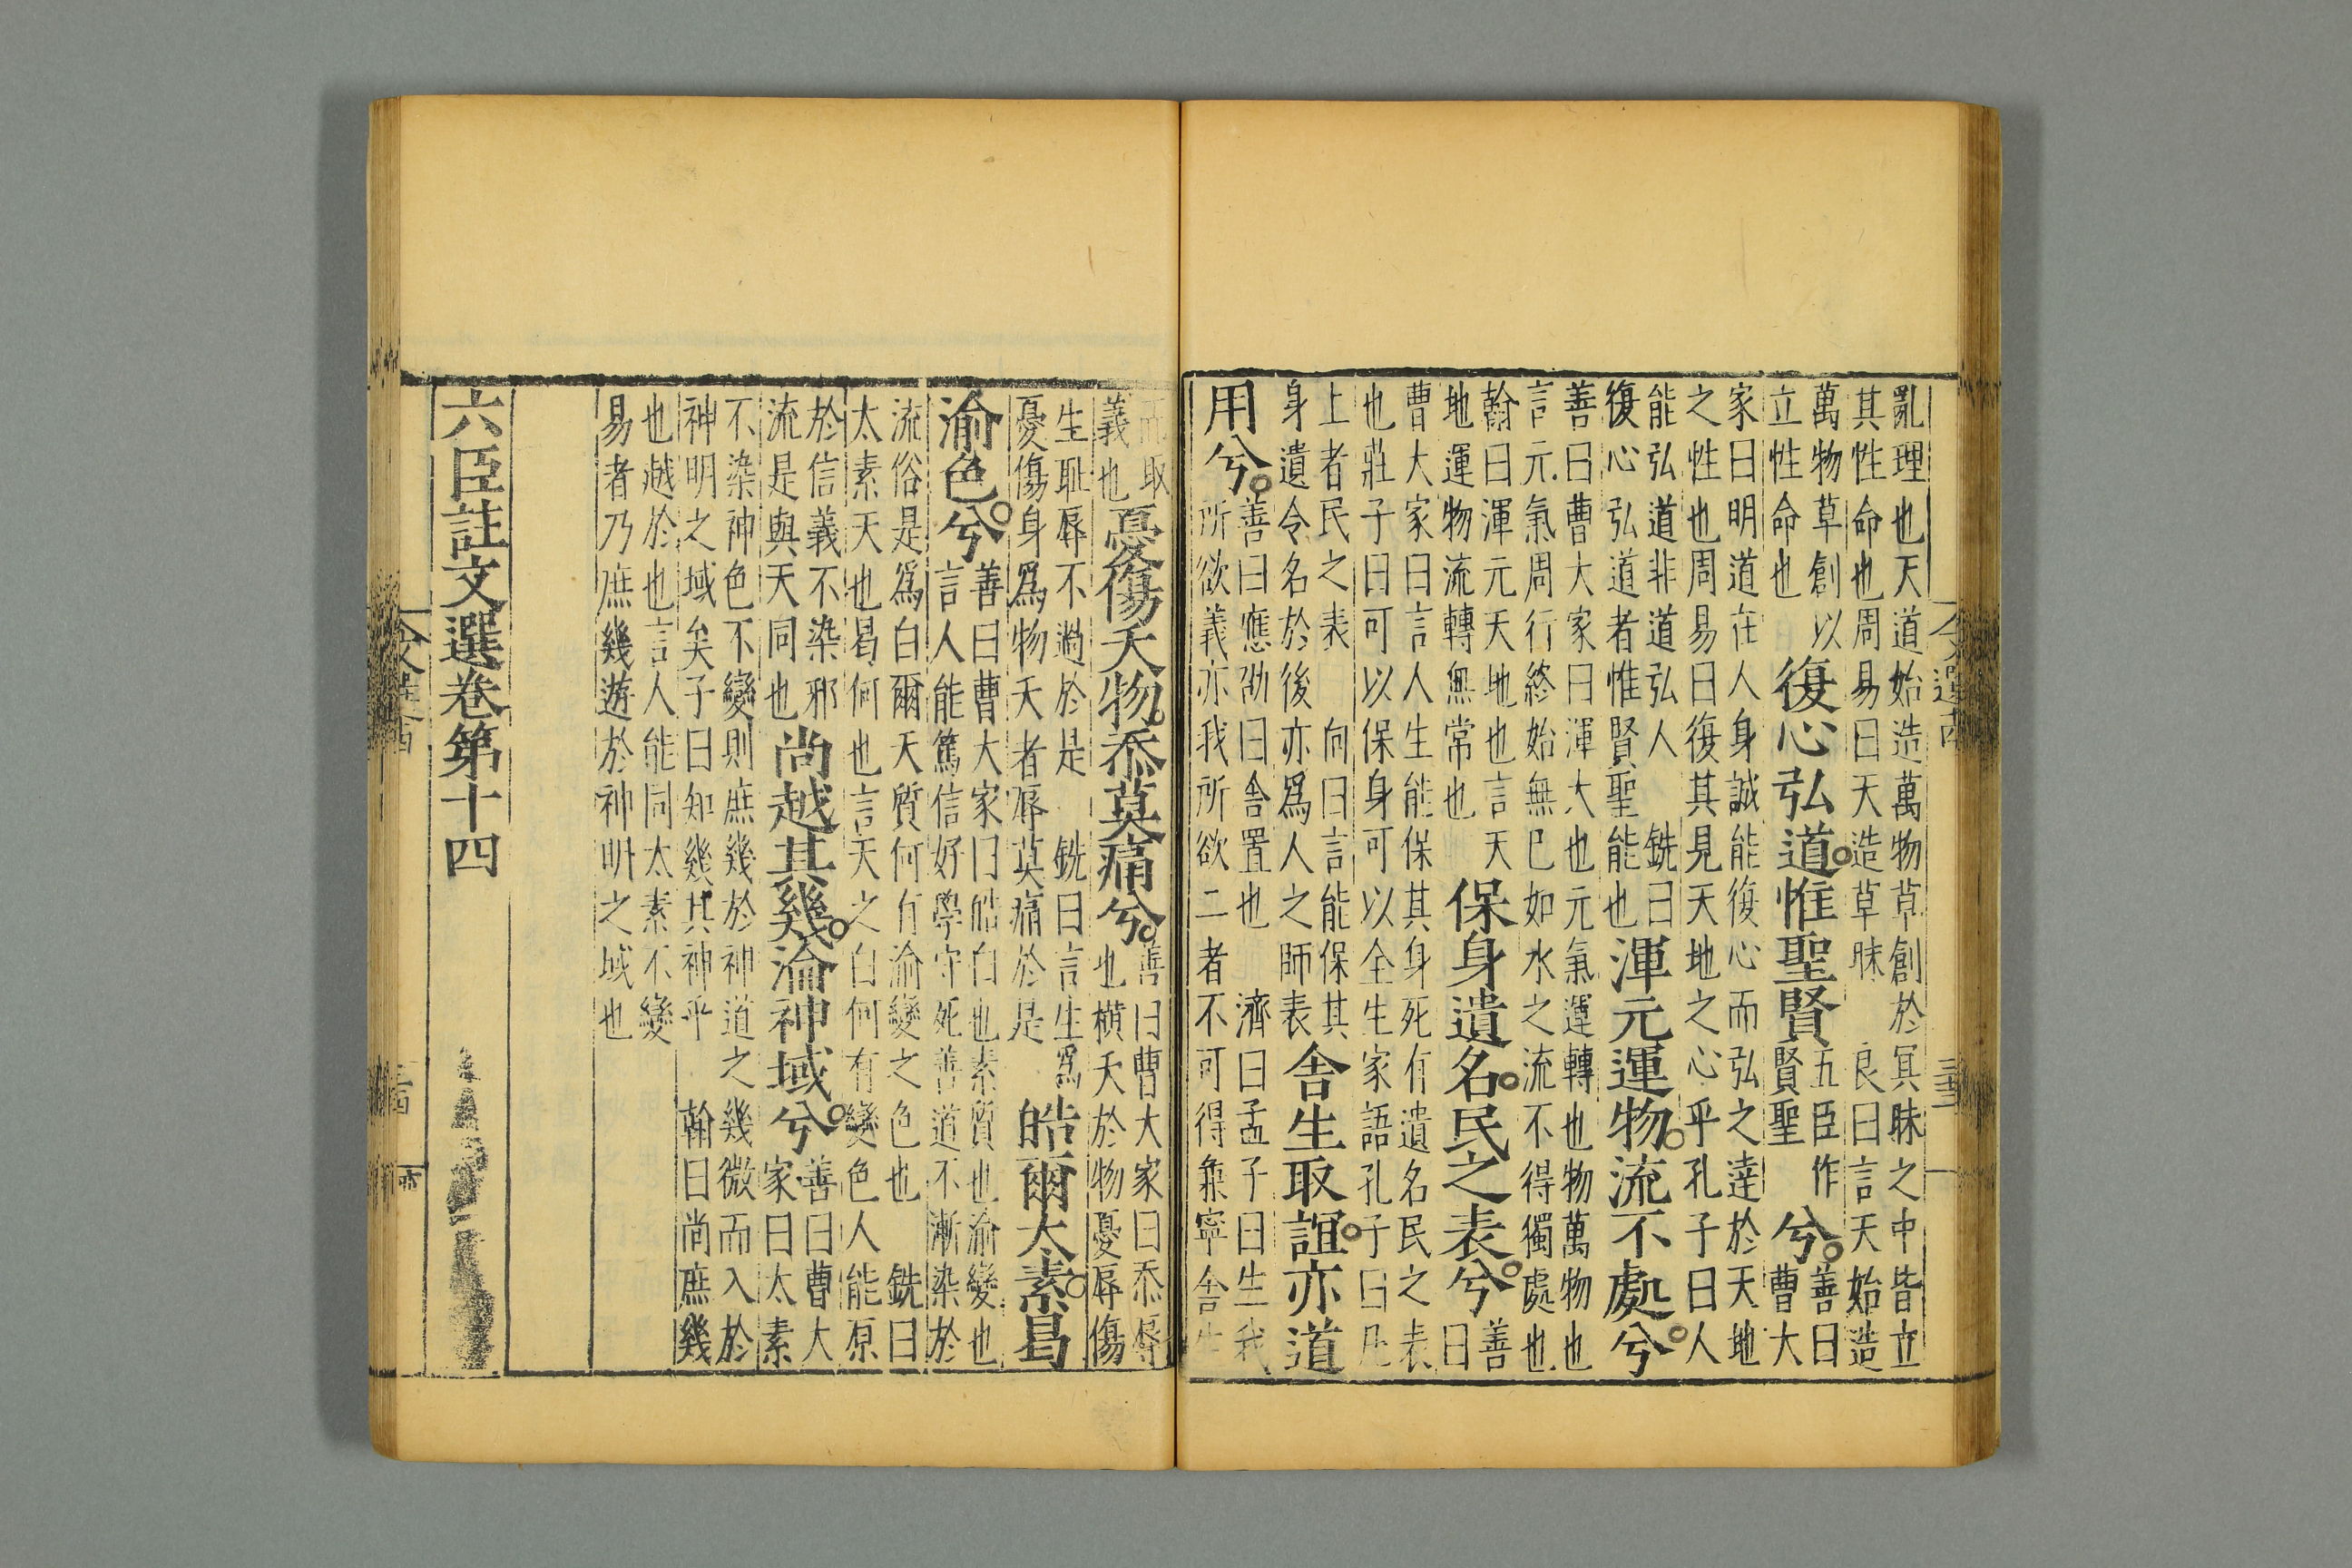 亂理也天道始造萬物草創於冥昧之中皆立
其性命也周易曰天造草昧 良曰言天始造
萬物草創以
立性命也
復心弘道惟聖賢
五臣作
賢聖
兮
善曰
曹大
家曰明道在人身誠能復心而弘之達於天地
之性也周易曰復其見天地之心乎孔子曰人
能弘道非道弘人 銑曰
復心弘道者惟賢聖能也
渾元運物流不處兮
善曰曹大家曰渾大也元氣運轉也物萬物也
言元氣周行終始無已如水之流不得獨處也
翰曰渾元天地也言天
地運物流轉無常也
保身遺名民之表兮
善
曰
曹大家曰言人生能保其身死有遺名民之表
也莊子曰可以保身可以全生家語孔子曰凡
上者民之表 向曰言能保其
身遺令名於後亦為人之師表
舍生取誼亦道
用兮
善曰應劭曰舍置也 濟曰孟子曰生我
所欲義亦我所欲二者不可得兼寧舍生
而取
義也
憂傷夭物忝莫痛兮
善曰曹大家曰忝辱
也橫夭於物憂辱傷
生耻辱不過於是 銑曰言生爲
憂傷身爲物夭者辱莫痛於是
皓爾太素曷
渝色兮
善曰曹大家曰皓白也素質也渝變也
言人能篤信好學守死善道不漸染於
流俗是爲白爾天質何有渝變之色也 銑曰
太素天也曷何也言天之白何有變色人能原
於信義不染邪
流是與天同也
尚越其幾淪神域兮
善曰曹大
家曰太素
不染神色不變則庶幾於神道之幾微而入於
神明之域矣子曰知幾其神乎 翰曰尚庶幾
也越於也言人能同太素不變
易者乃庶幾遊於神明之域也
六臣註文選卷第十四